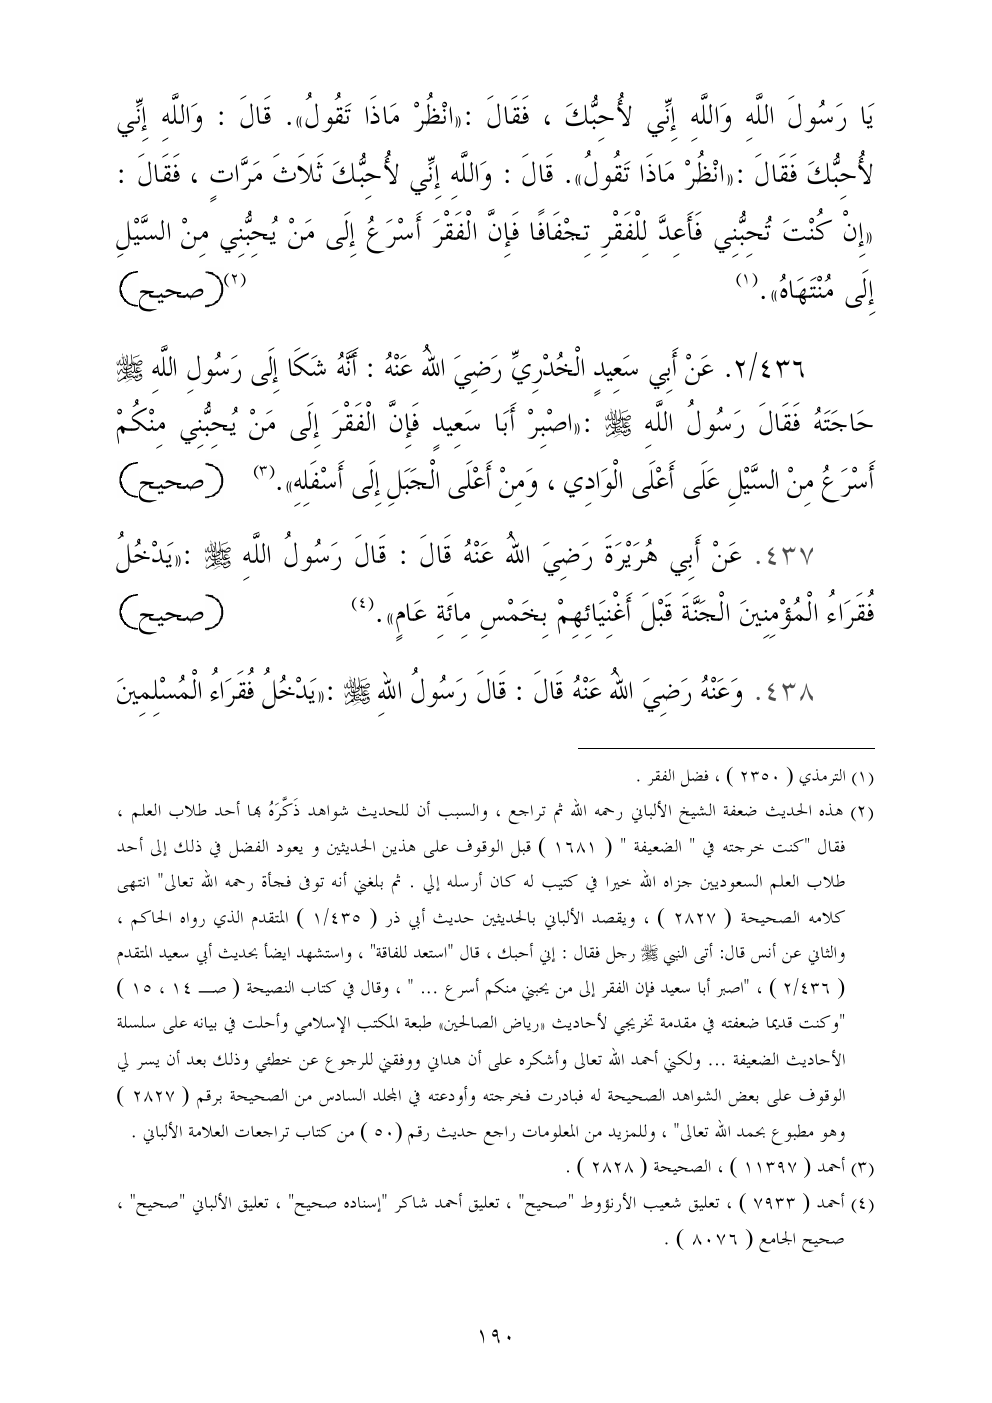 يَا رَسُولَ اللَّهِ وَاللَّهِ إِنِّي لأُحِبُّكَ ، فَقَالَ :«انْظُرْ مَاذَا تَقُولُ». قَالَ : وَاللَّهِ إِنِّي
لأُحِبُّكَ فَقَالَ :«انْظُرْ مَاذَا تَقُولُ». قَالَ : وَاللَّهِ إِنِّي لأُحِبُّكَ ثَلاَثَ مَرَّاتٍ ، فَقَالَ :
«إِنْ كُنْتَ تُحِبُّنِي فَأَعِدَّ لِلْفَقْرِ تِجْفَافًا فَإِنَّ الْفَقْرَ أَسْرَعُ إِلَى مَنْ يُحِبُّنِي مِنْ السَّيْلِ
إِلَى مُنْتَهَاهُ».(١) (٢)(صحيح)
٢/٤٣٦. عَنْ أَبِي سَعِيدٍ الْخُدْرِيِّ رَضِيَ اللهُ عَنْهُ : أَنَّهُ شَكَا إِلَى رَسُولِ اللَّهِ ﷺ
حَاجَتَهُ فَقَالَ رَسُولُ اللَّهِ ﷺ :«اصْبِرْ أَبَا سَعِيدٍ فَإِنَّ الْفَقْرَ إِلَى مَنْ يُحِبُّنِي مِنْكُمْ
أَسْرَعُ مِنْ السَّيْلِ عَلَى أَعْلَى الْوَادِي ، وَمِنْ أَعْلَى الْجَبَلِ إِلَى أَسْفَلِهِ».(٣) (صحيح)
٤٣٧. عَنْ أَبِي هُرَيْرَةَ رَضِيَ اللهُ عَنْهُ قَالَ : قَالَ رَسُولُ اللَّهِ ﷺ :«يَدْخُلُ
فُقَرَاءُ الْمُؤْمِنِينَ الْجَنَّةَ قَبْلَ أَغْنِيَائِهِمْ بِخَمْسِ مِائَةِ عَامٍ».(٤) (صحيح)
٤٣٨. وَعَنْهُ رَضِيَ اللهُ عَنْهُ قَالَ : قَالَ رَسُولُ اللهِ ﷺ :«يَدْخُلُ فُقَرَاءُ الْمُسْلِمِينَ
(١) الترمذي ( ٢٣٥٠ ) ، فضل الفقر .
(٢) هذه الحديث ضعفة الشيخ الألباني رحمه الله ثم تراجع ، والسبب أن للحديث شواهد ذَكَّرَهُ بها أحد طلاب العلم ،
فقال "كنت خرجته في " الضعيفة " ( ١٦٨١ ) قبل الوقوف على هذين الحديثين و يعود الفضل في ذلك إلى أحد
طلاب العلم السعوديين جزاه الله خيرا في كتيب له كان أرسله إلي . ثم بلغني أنه توفى فجأة رحمه الله تعالى" انتهى
كلامه الصحيحة ( ٢٨٢٧ ) ، ويقصد الألباني بالحديثين حديث أبي ذر ( ١/٤٣٥ ) المتقدم الذي رواه الحاكم ،
والثاني عن أنس قال: أتى النبي ﷺ رجل فقال : إني أحبك ، قال "استعد للفاقة" ، واستشهد ايضأ بحديث أبي سعيد المتقدم
( ٢/٤٣٦ ) ، "اصبر أبا سعيد فإن الفقر إلى من يحبني منكم أسرع ... " ، وقال في كتاب النصيحة ( صـــ ١٤ ، ١٥ )
"وكنت قديما ضعفته في مقدمة تخريجي لأحاديث «رياض الصالحين» طبعة المكتب الإسلامي وأحلت في بيانه على سلسلة
الأحاديث الضعيفة ... ولكني أحمد الله تعالى وأشكره على أن هداني ووفقني للرجوع عن خطئي وذلك بعد أن يسر لي
الوقوف على بعض الشواهد الصحيحة له فبادرت فخرجته وأودعته في المجلد السادس من الصحيحة برقم ( ٢٨٢٧ )
وهو مطبوع بحمد الله تعالى" ، وللمزيد من المعلومات راجع حديث رقم (٥٠ ) من كتاب تراجعات العلامة الألباني .
(٣) أحمد ( ١١٣٩٧ ) ، الصحيحة ( ٢٨٢٨ ) .
(٤) أحمد ( ٧٩٣٣ ) ، تعليق شعيب الأرنؤوط "صحيح" ، تعليق أحمد شاكر "إسناده صحيح" ، تعليق الألباني "صحيح" ،
صحيح الجامع ( ٨٠٧٦ ) .
١٩٠